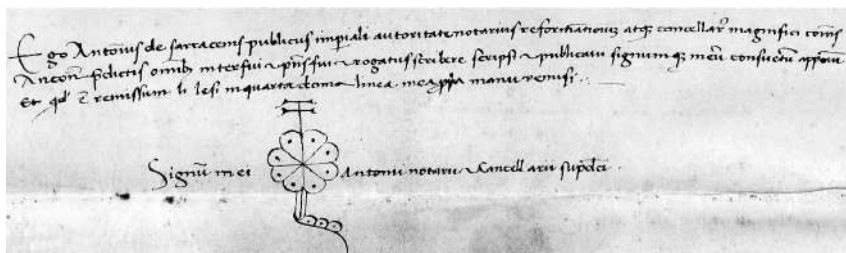 Ego Antonius de sarracenis publicus imperiali autoritate notarius reformationuz atqz cancellari9 magnifici comis
Ancon p̄dictis omīb interfui & pn̄s fui & rogatus scribere scripsi & publicaui signumqz meū consuetū apposui
Et qd ē remissum li lesi in quarta linea mea ppria manu remisi
Signū mei Antonii notarii & cancellarii supdcī